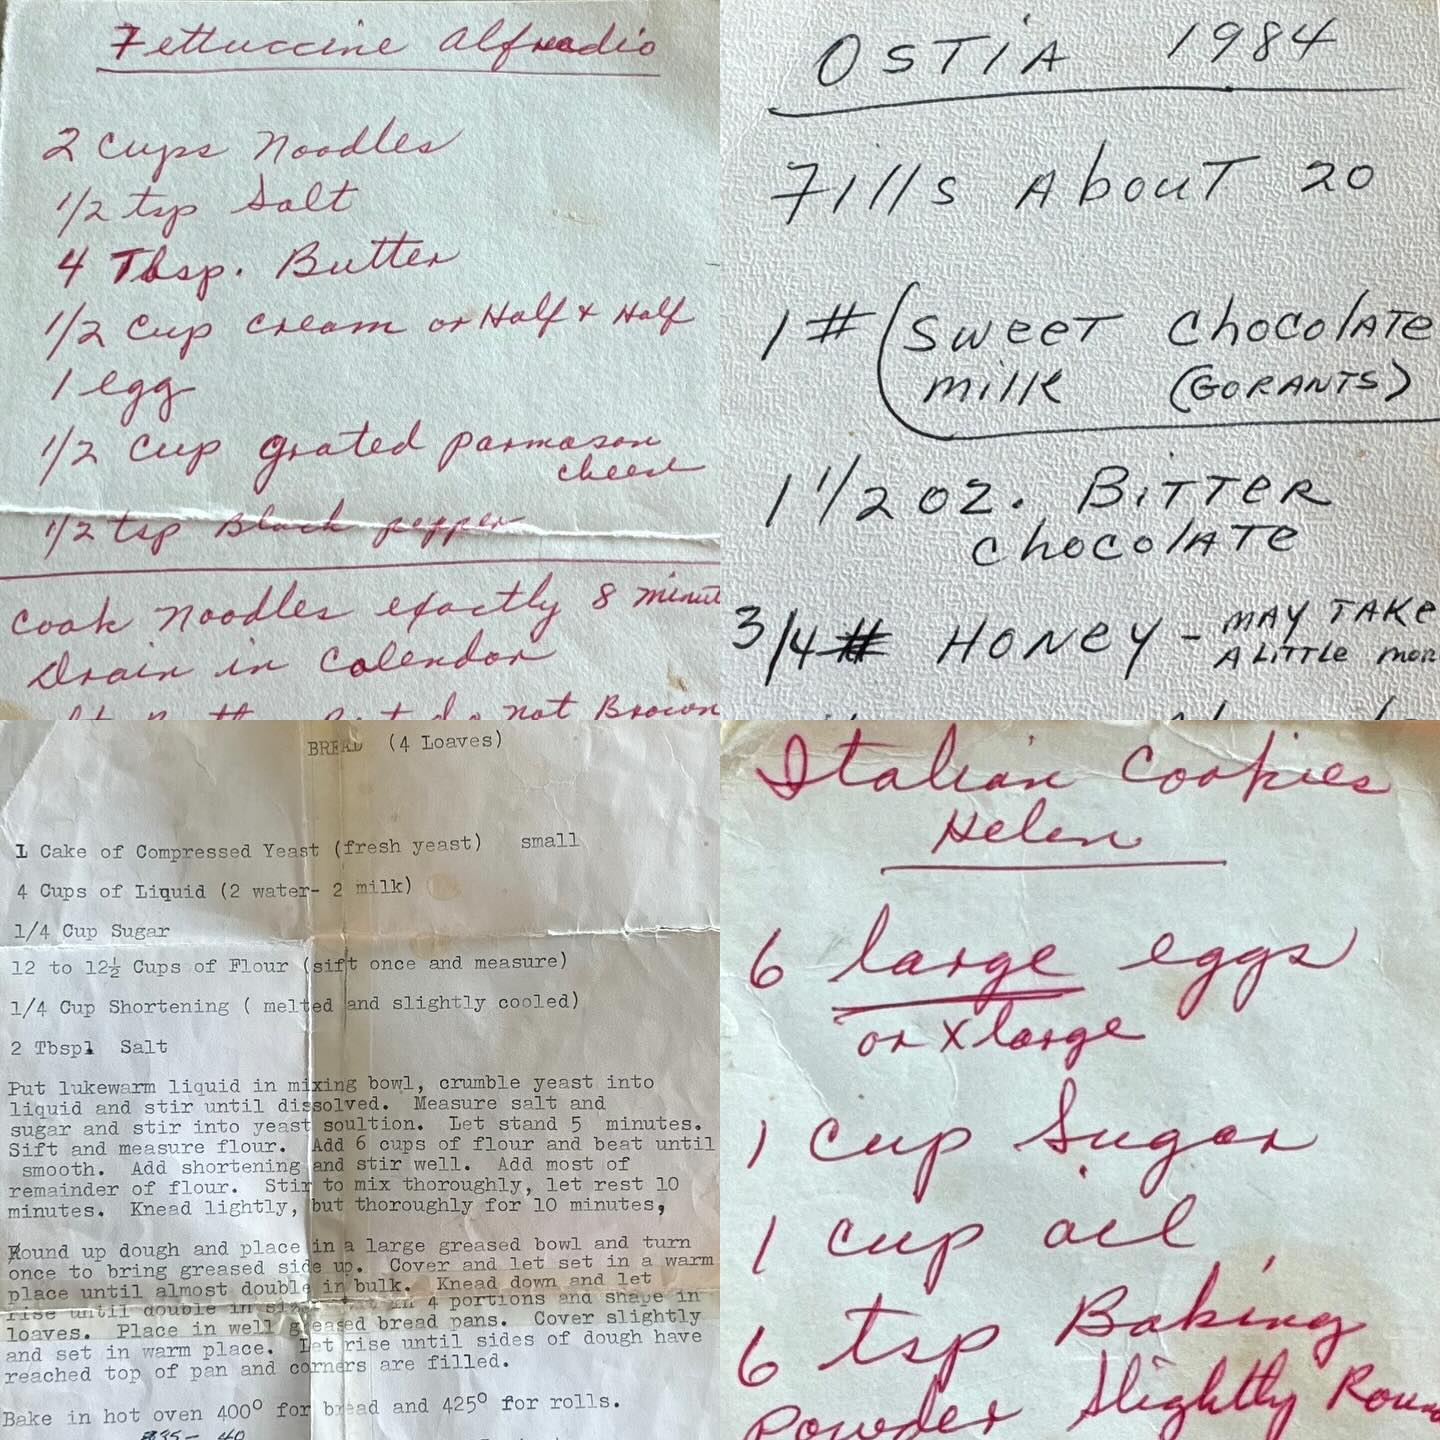 Fettuccine Alfreadio
2 Cups Noodles
1/2 tsp Salt
4 Tbsp. Butter
1/2 Cup Cream or Half & Half
1 egg
1/2 Cup grated parmasan
cheese
1/2 tsp Black pepper
Cook Noodles exactly 8 minut
Drain in Calendar
not Brown
OSTIA 1984
Fills About 20
1# (Sweet Chocolate
milk (GORANTS)
1 1/2 oz. BITTER
chocolate
3/4 # HONEY - MAY TAKE
A LITTLE mor
BREAD (4 Loaves)
1 Cake of Compressed Yeast (fresh yeast) small
4 Cups of Liquid (2 water- 2 milk)
1/4 Cup Sugar
12 to 12½ Cups of Flour (sift once and measure)
1/4 Cup Shortening ( melted and slightly cooled)
2 Tbspl Salt
Put lukewarm liquid in mixing bowl, crumble yeast into
liquid and stir until dissolved. Measure salt and
sugar and stir into yeast soultion. Let stand 5 minutes.
Sift and measure flour. Add 6 cups of flour and beat until
smooth. Add shortening and stir well. Add most of
remainder of flour. Stir to mix thoroughly, let rest 10
minutes. Knead lightly, but thoroughly for 10 minutes,
Round up dough and place in a large greased bowl and turn
once to bring greased side up. Cover and let set in a warm
place until almost double in bulk. Knead down and let
rise until double in in 4 portions and shape in
loaves. Place in well greased bread pans. Cover slightly
and set in warm place. Let rise until sides of dough have
reached top of pan and corners are filled.
Bake in hot oven 400° for bread and 425° for rolls.
35- 40
Italian Cookies
Helen
6 large eggs
or x large
1 cup Sugar
1 cup oil
6 tsp Baking
Powder Slightly Roun